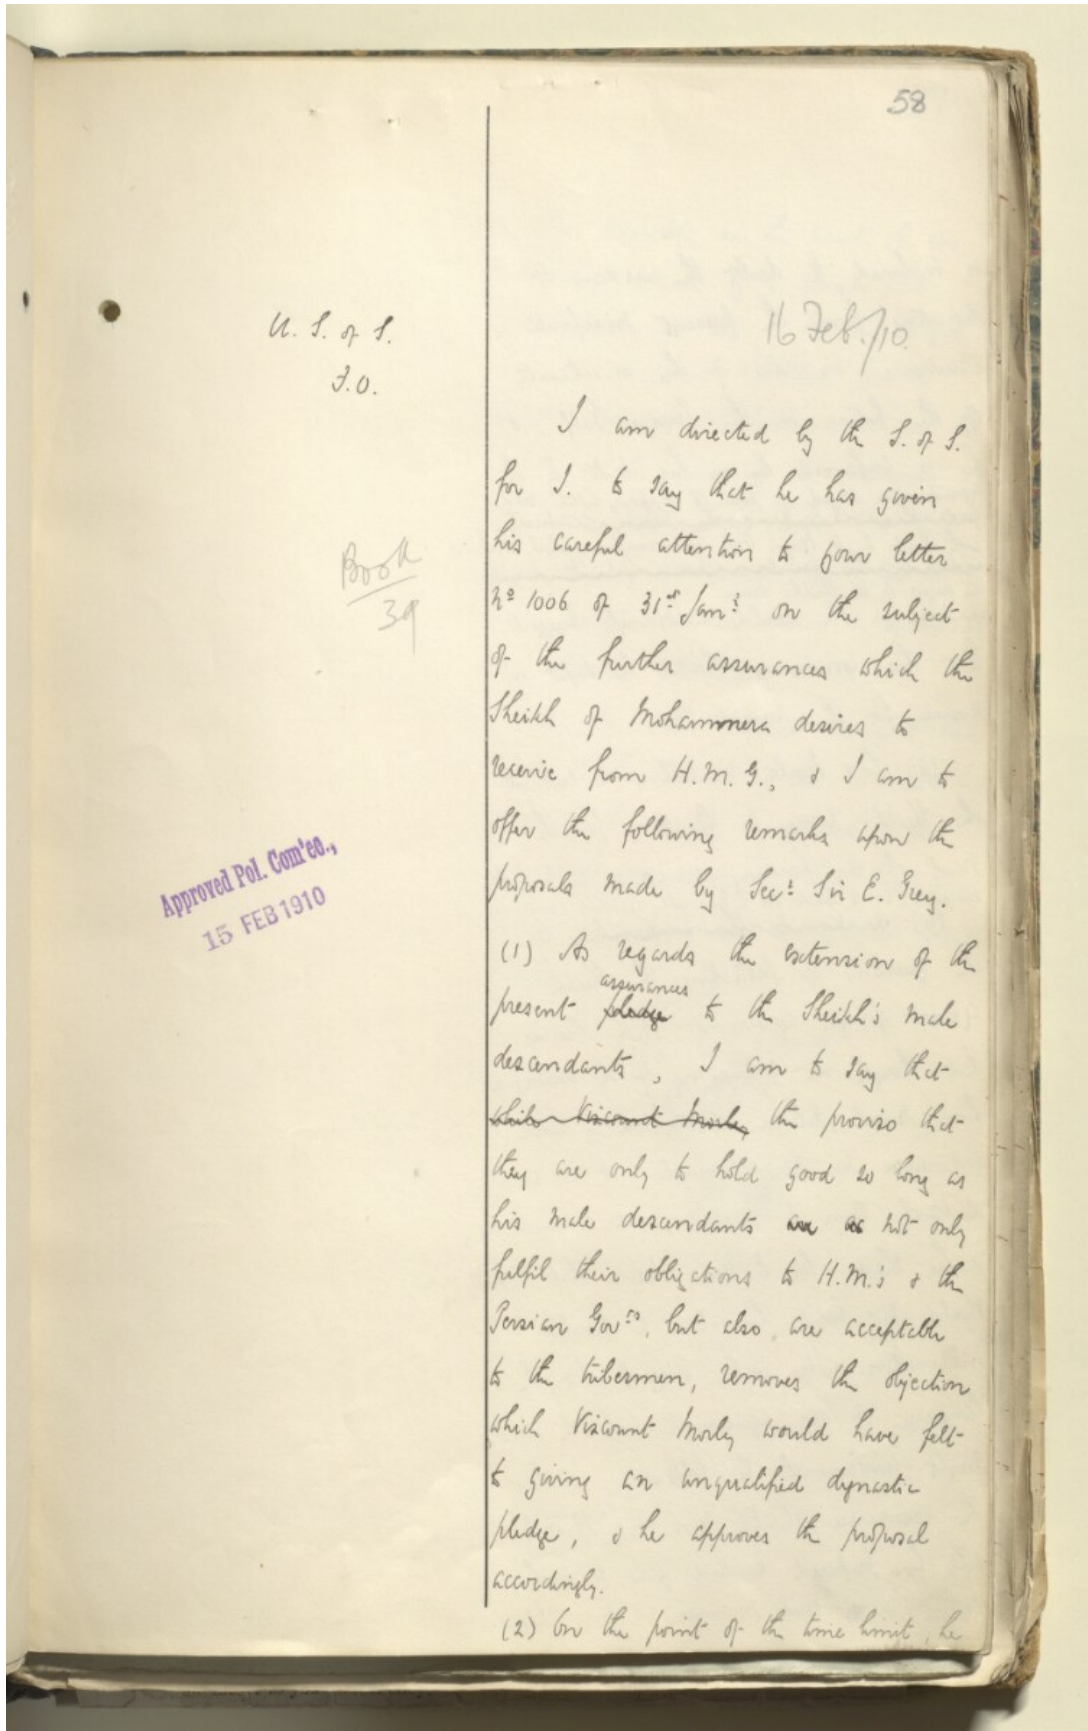 58
U. S. of S.
F.O.
16 Feb./10.
I am directed by the S. of S.
for I. to say that he has given
his careful attention to your letter
Book
39
No 1006 of 31st Jany on the subject
of the further assurances which the
Sheikh of Mohammera desires to
receive from H.M.G., & I am to
offer the following remarks upon the
proposals made by Secy Sir E. Grey.
Approved Pol. Com'ee.,
15 FEB 1910
(1) As regards the extension of the
assurances
present pledge to the Sheikh's male
descendants, I am to say that
while Viscount Morley the proviso that
they are only to hold good so long as
his male descendants are as not only
fulfil their obligations to H.M.'s & the
Persian Govts, but also are acceptable
to the tribesmen, removes the objection
which Viscount Morley would have felt
to giving an unqualified dynastic
pledge, & he approves the proposal
accordingly.
(2) On the point of the time limit, he